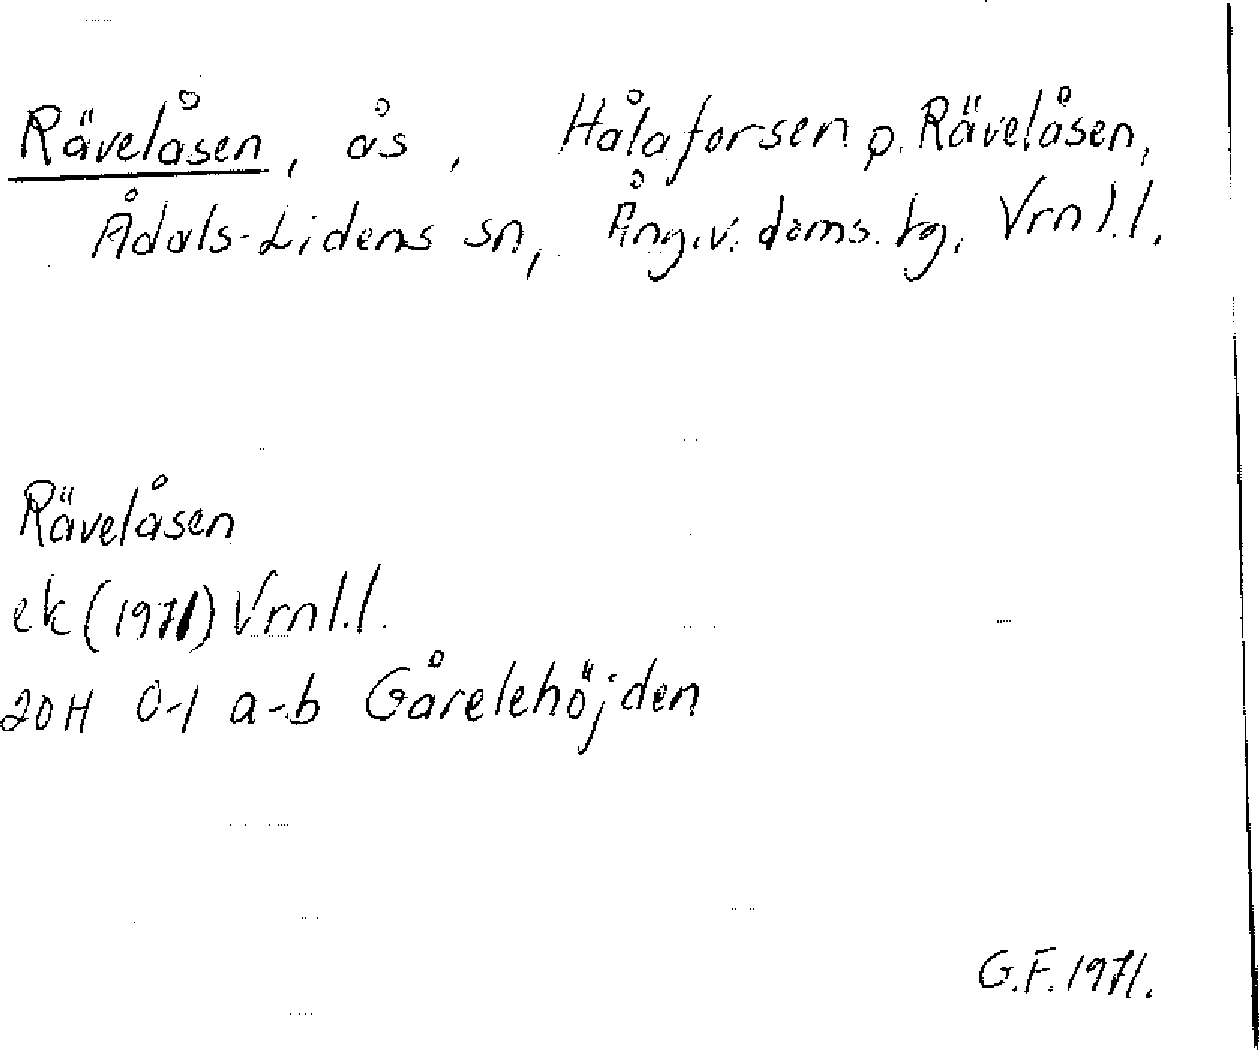 Rävelåsen, ås, Hålaforsen p. Rävelåsen,
Ådals-Lidens sn, Ång.v. doms. tg. Vrnl.l.
Rävelåsen
ek (1971) Vrnl.l.
20H 0-1 a-b Gårelehöjden
G.F. 1971.